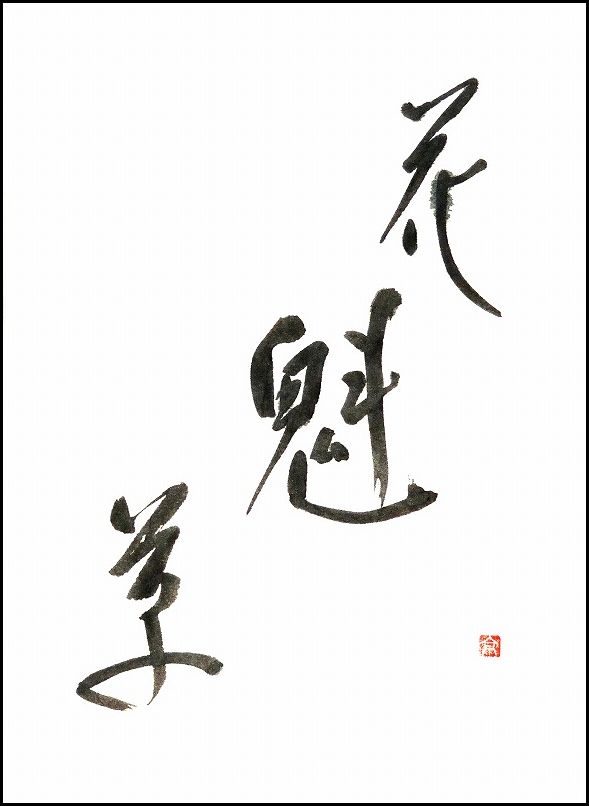 花魁草